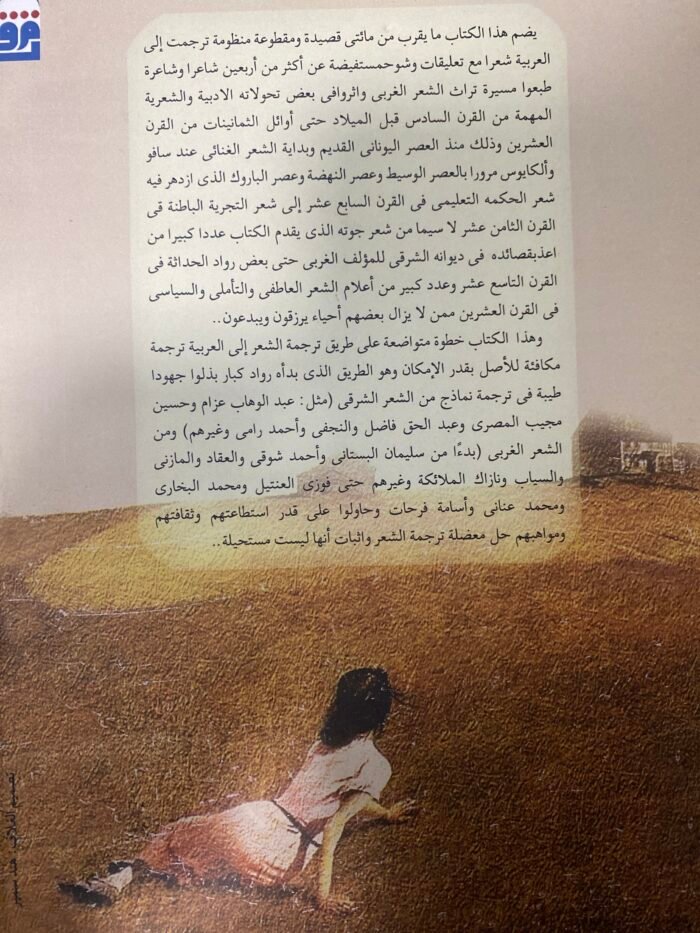 شرق
يضم هذا الكتاب ما يقرب من مائتى قصيدة ومقطوعة منظومة ترجمت إلى
العربية شعرا مع تعليقات وشوحمستفيضة عن أكثر من أربعين شاعرا وشاعرة
طبعوا مسيرة تراث الشعر الغربى واثروافى بعض تحولاته الادبية والشعرية
المهمة من القرن السادس قبل الميلاد حتى أوائل الثمانينات من القرن
العشرين وذلك منذ العصر اليونانى القديم وبداية الشعر الغنائى عند سافو
وألكايوس مرورا بالعصر الوسيط وعصر النهضة وعصر الباروك الذى ازدهر فيه
شعر الحكمه التعليمى فى القرن السابع عشر إلى شعر التجربة الباطنة قى
القرن الثامن عشر لا سيما من شعر جوته الذى يقدم الكتاب عددا كبيرا من
اعذبقصائده فى ديوانه الشرقى للمؤلف الغربى حتى بعض رواد الحداثة فى
القرن التاسع عشر وعدد كبير من أعلام الشعر العاطفى والتأملى والسياسى
فى القرن العشرين ممن لا يزال بعضهم أحياء يرزقون ويبدعون..
وهذا الكتاب خطوة متواضعة على طريق ترجمة الشعر إلى العربية ترجمة
مكافئة للأصل بقدر الإمكان وهو الطريق الذى بدأه رواد كبار بذلوا جهودا
طيبة فى ترجمة نماذج من الشعر الشرقى (مثل: عبد الوهاب عزام وحسين
مجيب المصرى وعبد الحق فاضل والنجفى وأحمد رامى وغيرهم) ومن
الشعر الغربى (بدءًا من سليمان البستانى وأحمد شوقى والعقاد والمازنى
والسياب ونازاك الملائكة وغيرهم حتى فوزى العنتيل ومحمد البخارى
ومحمد عنانى وأسامة فرحات وحاولوا على قدر استطاعتهم وثقافتهم
ومواهبهم حل معضلة ترجمة الشعر واثبات أنها ليست مستحيلة..
تصميم الغلاف: هند سمير